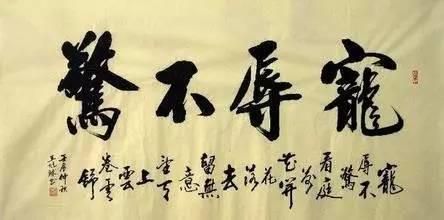 寵辱不驚
寵
辱不驚
看庭
前
花開
花落
去
留無意
望天
上
雲
卷雲
舒
壬辰仲秋